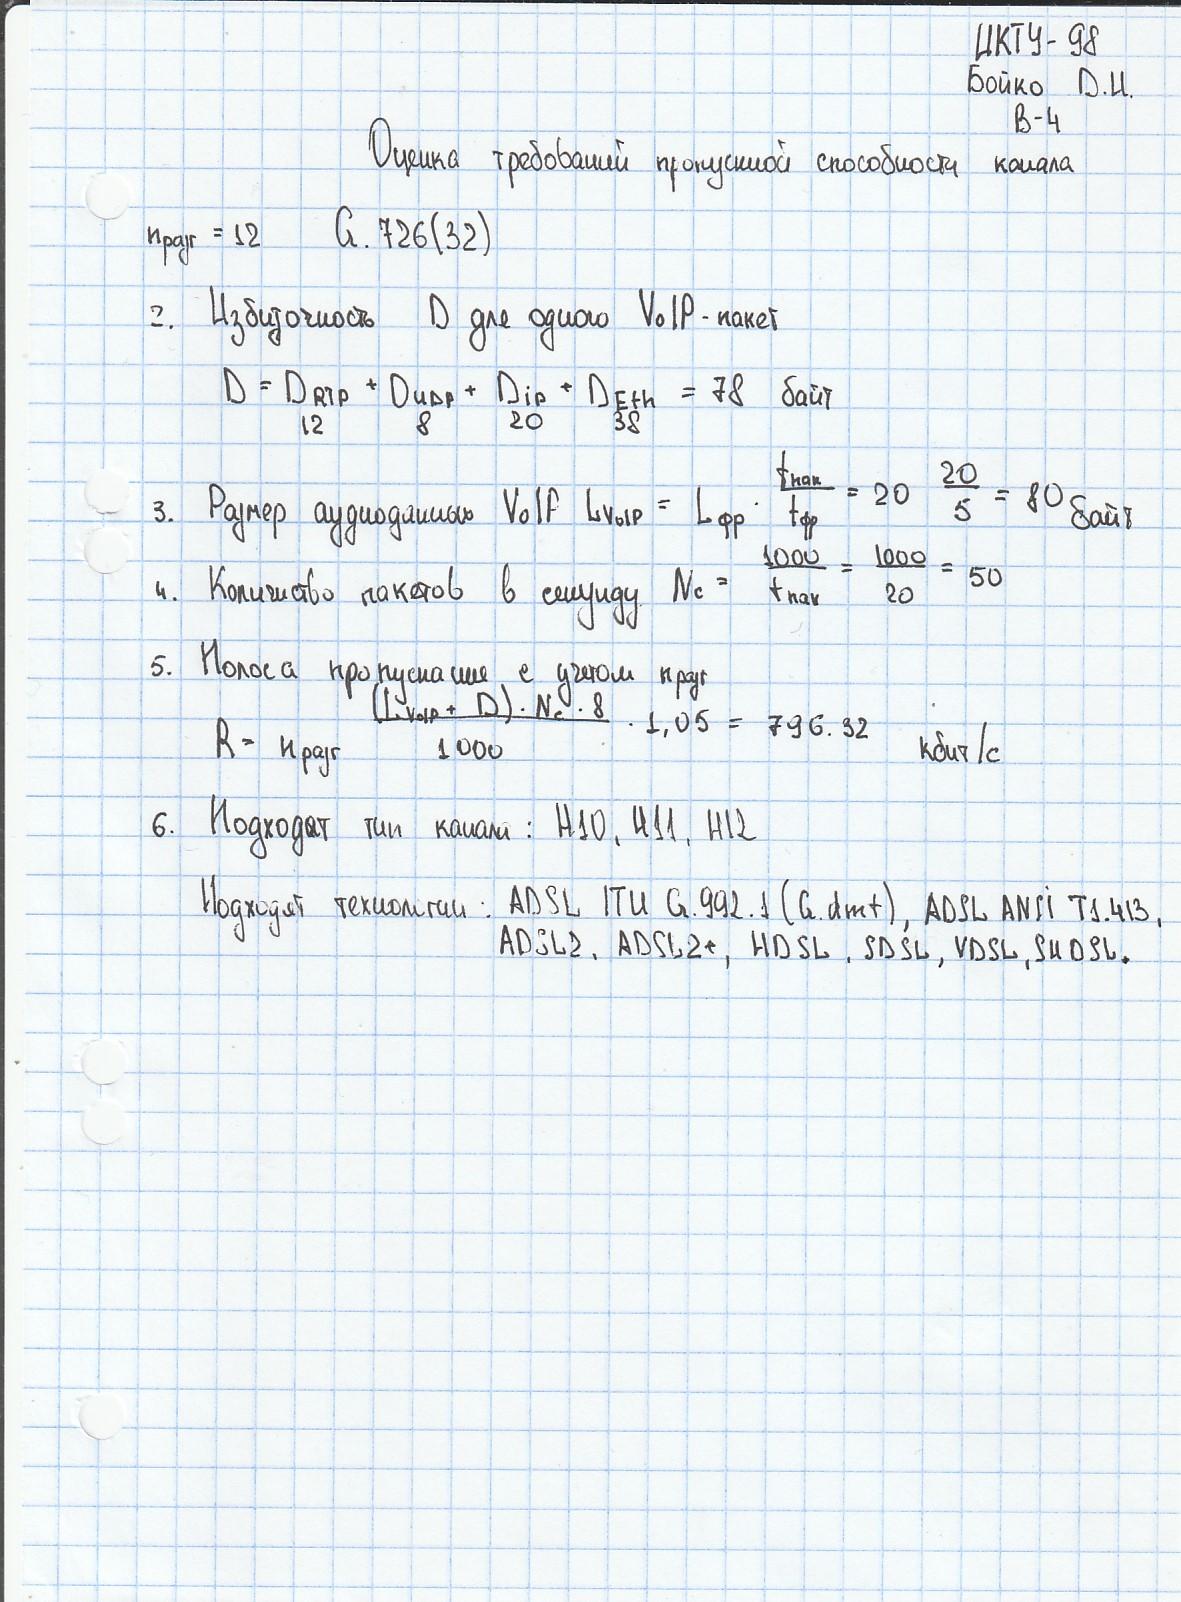 ИКТУ-98
Бойко Д.И.
В-4
Оценка требований пропускной способности канала
nразг = 12 G.726(32)
2. Избиточность D для одного VoIP-пакет
D = DRTP + DUDP + Dip + DEth = 78 байт
12 8 20 38
3. Размер аудиоданных VoIP LVoIP = Lфр · tпак/tфр = 20 20/5 = 80 байт
4. Количество пакетов в секунду Nc = 1000/tпак = 1000/20 = 50
5. Полоса пропускание с учетом nразг
R = nразг (LVoIP + D) · Nc · 8/1000 · 1,05 = 796.32 кбит/с
6. Подходят тип канали: H10, H11, H12
Подходят технологии: ADSL ITU G.992.1 (G.dmt), ADSL ANSI T1.413,
ADSL2, ADSL2+, HDSL, SDSL, VDSL, SHDSL.